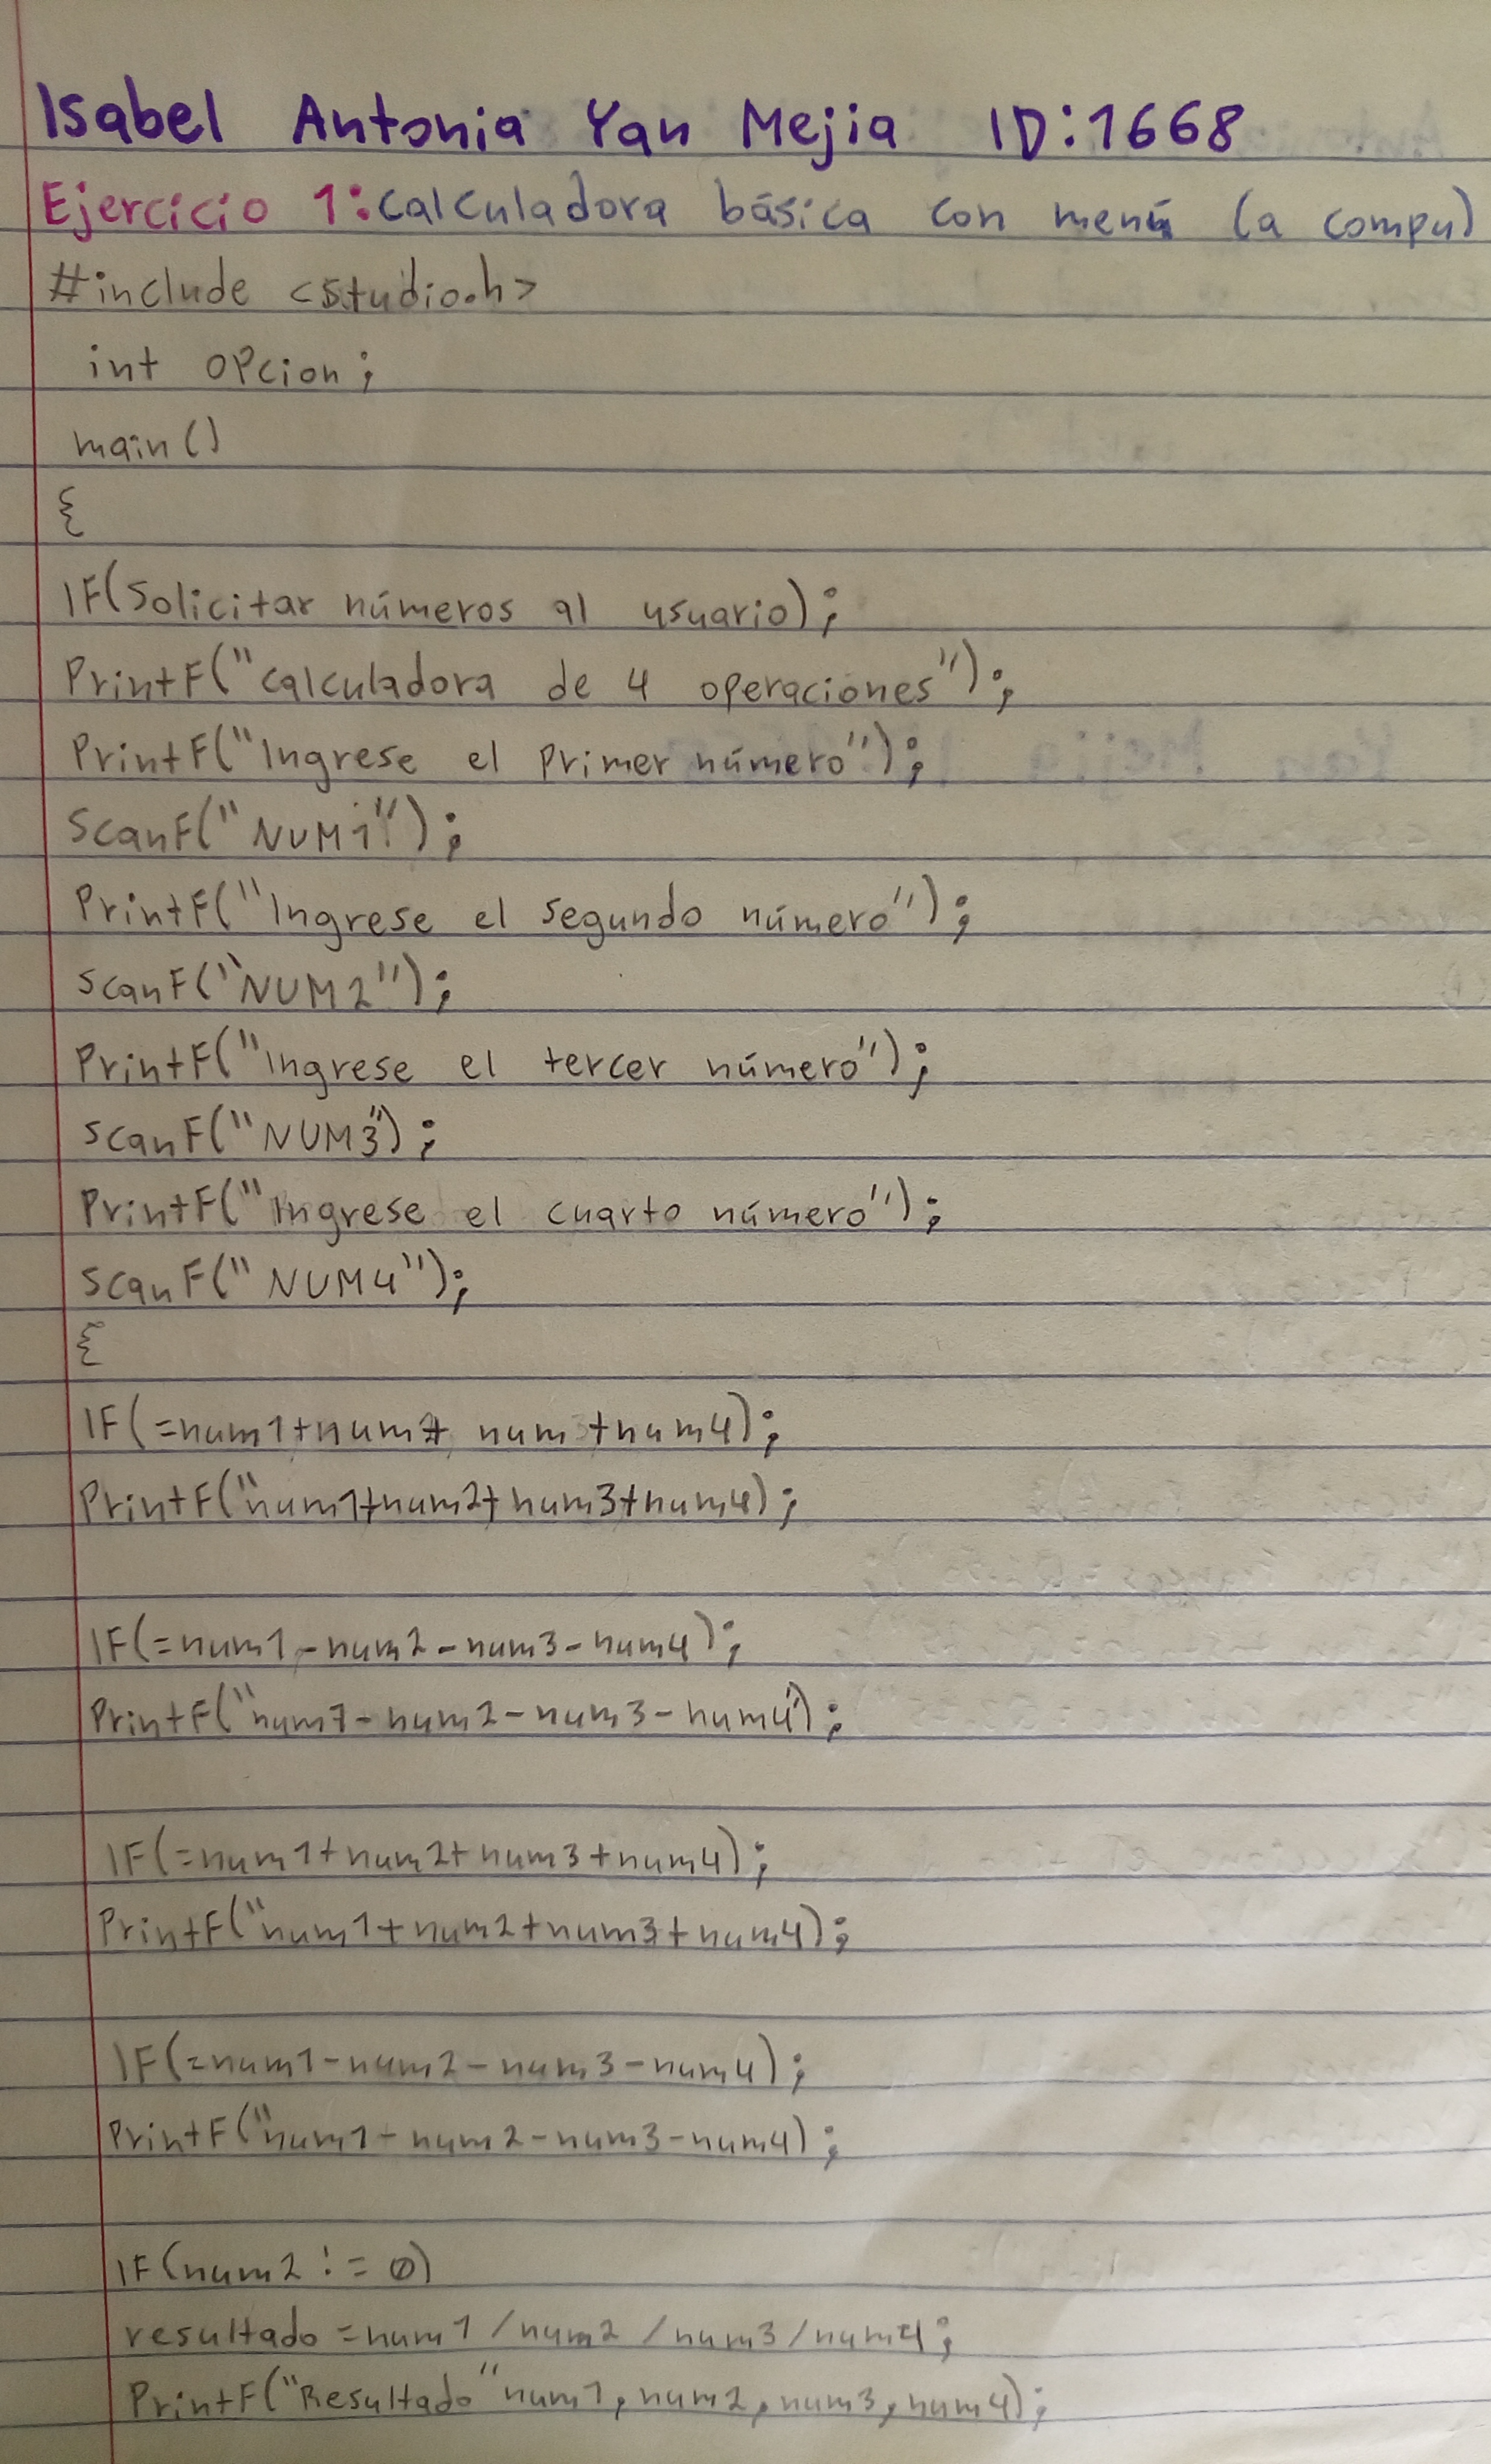 Isabel Antonia Yan Mejia ID:1668
Ejercicio 1: Calculadora básica con menú (a compu)
#include <studio.h>
int opcion;
main()
{
IF(Solicitar números al usuario);
PrintF("Calculadora de 4 operaciones");
PrintF("Ingrese el Primer número");
ScanF("NUM1");
PrintF("Ingrese el segundo número");
ScanF("NUM2");
PrintF("Ingrese el tercer número");
ScanF("NUM3");
PrintF("Ingrese el cuarto número");
ScanF("NUM4");
{
IF(=num1+num+ num+num4);
PrintF("num1+num2+num3+num4);
IF(=num1-num2-num3-num4);
PrintF("num1-num2-num3-num4");
IF(=num1+num2+num3+num4);
PrintF("num1+num2+num3+num4);
IF(=num1-num2-num3-num4);
PrintF("num1-num2-num3-num4);
IF(num2 != 0)
resultado =num1/num2/num3/num4;
PrintF("Resultado" num1, num2, num3, num4);